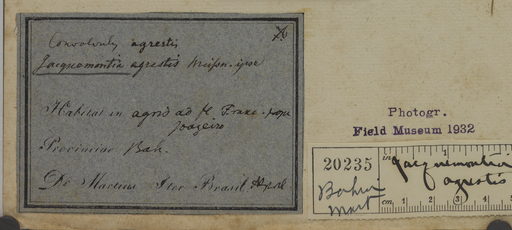 Convolvulus agrestis
Jacquemontia agrestis Meissn. ipse
Habitat in agris ad fl. Franc. prope
Joazeiro
Provinciae Bah.
Dr Martius Iter Brasil
Photogr.
Field Museum 1932
20235 Jacquemontia
agrestis
Bahia
Mart
cm 1 2 3 4 5